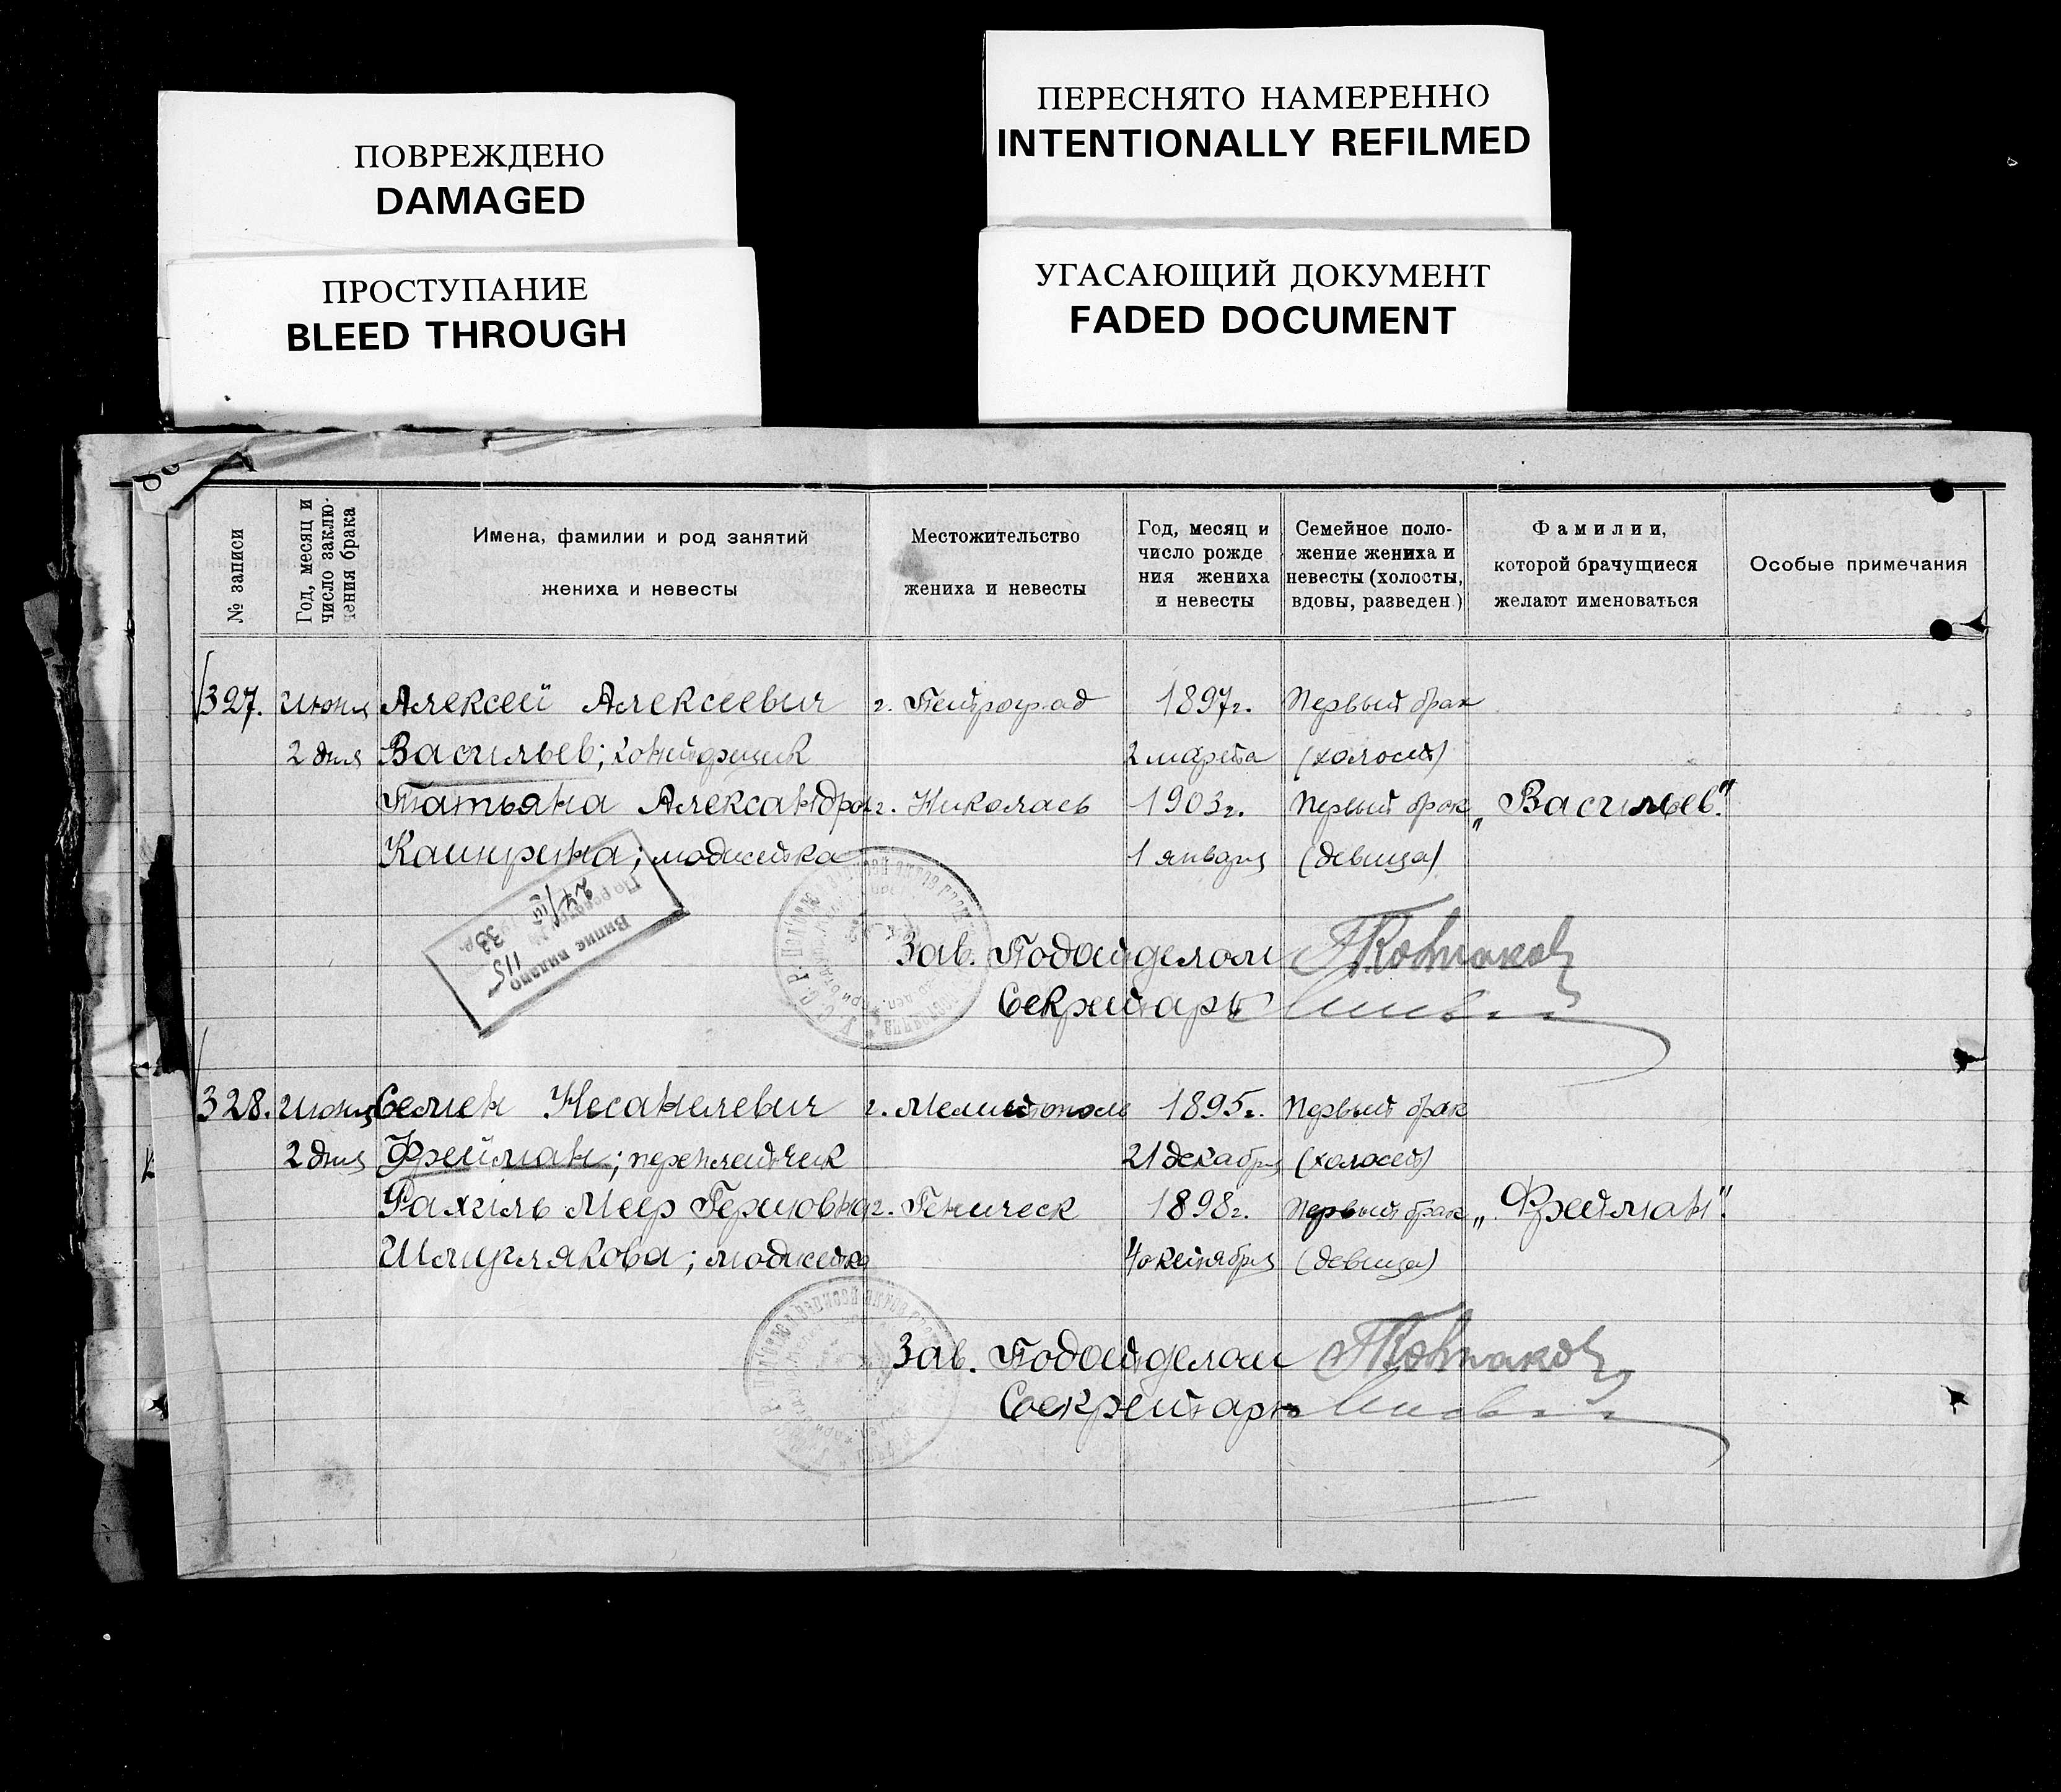 ПОВРЕЖДЕНО
DAMAGED
ПРОСТУПАНИЕ
BLEED THROUGH
ПЕРЕСНЯТО НАМЕРЕННО
INTENTIONALLY REFILMED
УГАСАЮЩИЙ ДОКУМЕНТ
FADED DOCUMENT
№ записи
Год, месяц и
число заклю-
чения брака
Имена, фамилии и род занятий
жениха и невесты
Местожительство
жениха и невесты
Год, месяц и
число рожде
ния жениха
и невесты
Семейное поло-
жение жениха и
невесты (холосты,
вдовы, разведен)
Фамилии,
которой брачущиеся
желают именоваться
Особые примечания
327. Июня Алексей Алексеевич г. Петроград 1897г. Первый брак
2 дня Васильев; конторщик 2 марта (холост)
Татьяна Александров г. Николаев 1903г. Первый брак „Васильев".
модистка 1 января (девица)
Випис видано
115
27/III 33 р.
Зав. Подотделом
Секретарь
328. Июня Семен Несанелевич г. Мелитополь 1895г. Первый брак
2 дня Фрейман; переплетчик 21 декабря (холост)
Рахиль Меер Гершовна г. Геническ 1898г. Первый брак „Фрейман".
Шмуглякова; модистка 4 октября (девица)
Зав. Подотделом
Секретарь